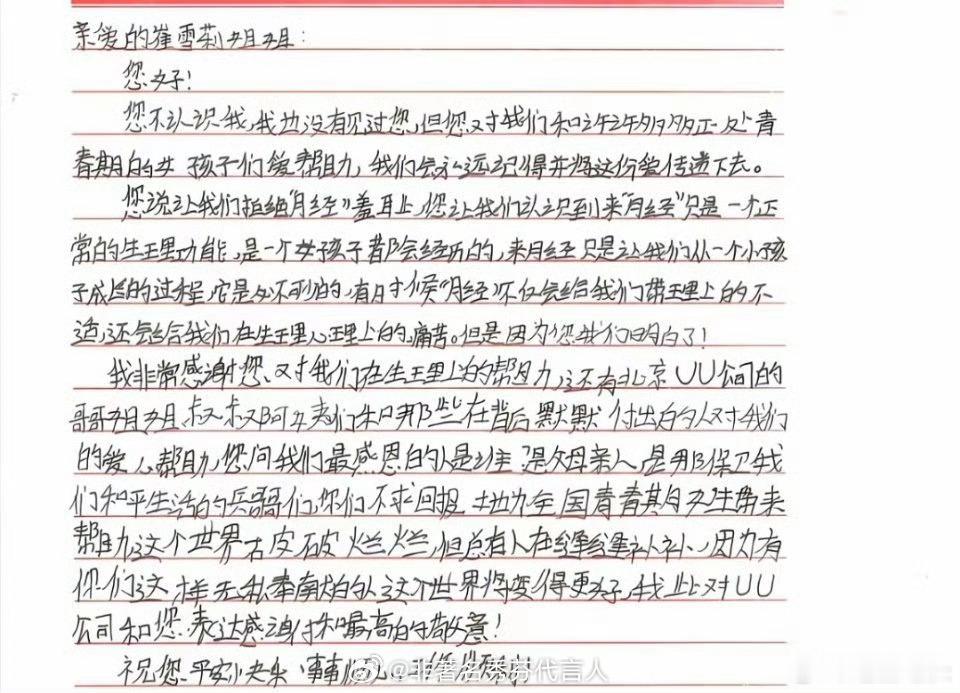 亲爱的崔雪莉姐姐：
您好！
您不认识我，我也没有见过您，但您对我们和许许多多正处青
春期的女孩子们爱帮助，我们会永远记得并将这份爱传递下去。
您说让我们拒绝“月经”羞耻，您让我们认识到来“月经”只是一个正
常的生理功能，是一个女孩子都会经历的，来月经只是让我们从一个小孩
子成长的过程，它是必不可少的，有时候“月经”不仅会给我们带理上的不
适，还会给我们在生理心理上的痛苦。但是因为您我们明白了！
我非常感谢您对我们在生理上的帮助，还有北京UU公司的
哥哥姐姐叔叔阿姨们和那些在背后默默付出的人对我们
的爱心帮助，您问我们最感恩的人是谁？是父母亲人，是那保卫我
们和平生活的兵哥们，你们不求回报地为全国青春期女生带来
帮助，这个世界破破烂烂，但总有人在缝缝补补，因为有
你们这样无私奉献的人这个世界将变得更好，我此对UU
公司和您表达感谢和最高的敬意！
祝您平安快乐 事事
@非著名秀芬代言人